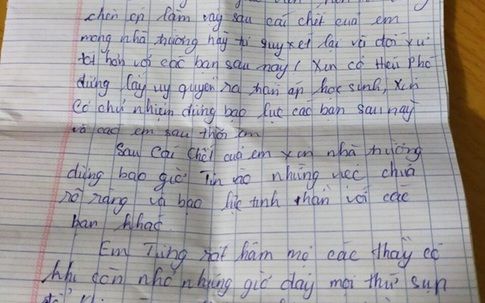 chọn có lầm vậy sau cái chết của em
mong nhà trường hãy tự suy xét lại và đối xử
tốt hơn với các bạn sau này! Xin cô Hiệu Phó
đừng lấy uy quyền ra đàn áp học sinh, Xin
Cô chủ nhiệm đừng bạo lực các bạn sau này
và các em sau thời em
Sau Cái Chết của em xin nhà trường
đừng bao giờ Tin vào những việc chưa
rõ ràng và bạo lực tinh thần với các
bạn khác.
Em Từng rất hâm mộ các thầy cô
khi còn nhỏ nhưng giờ đây mọi thứ sụp